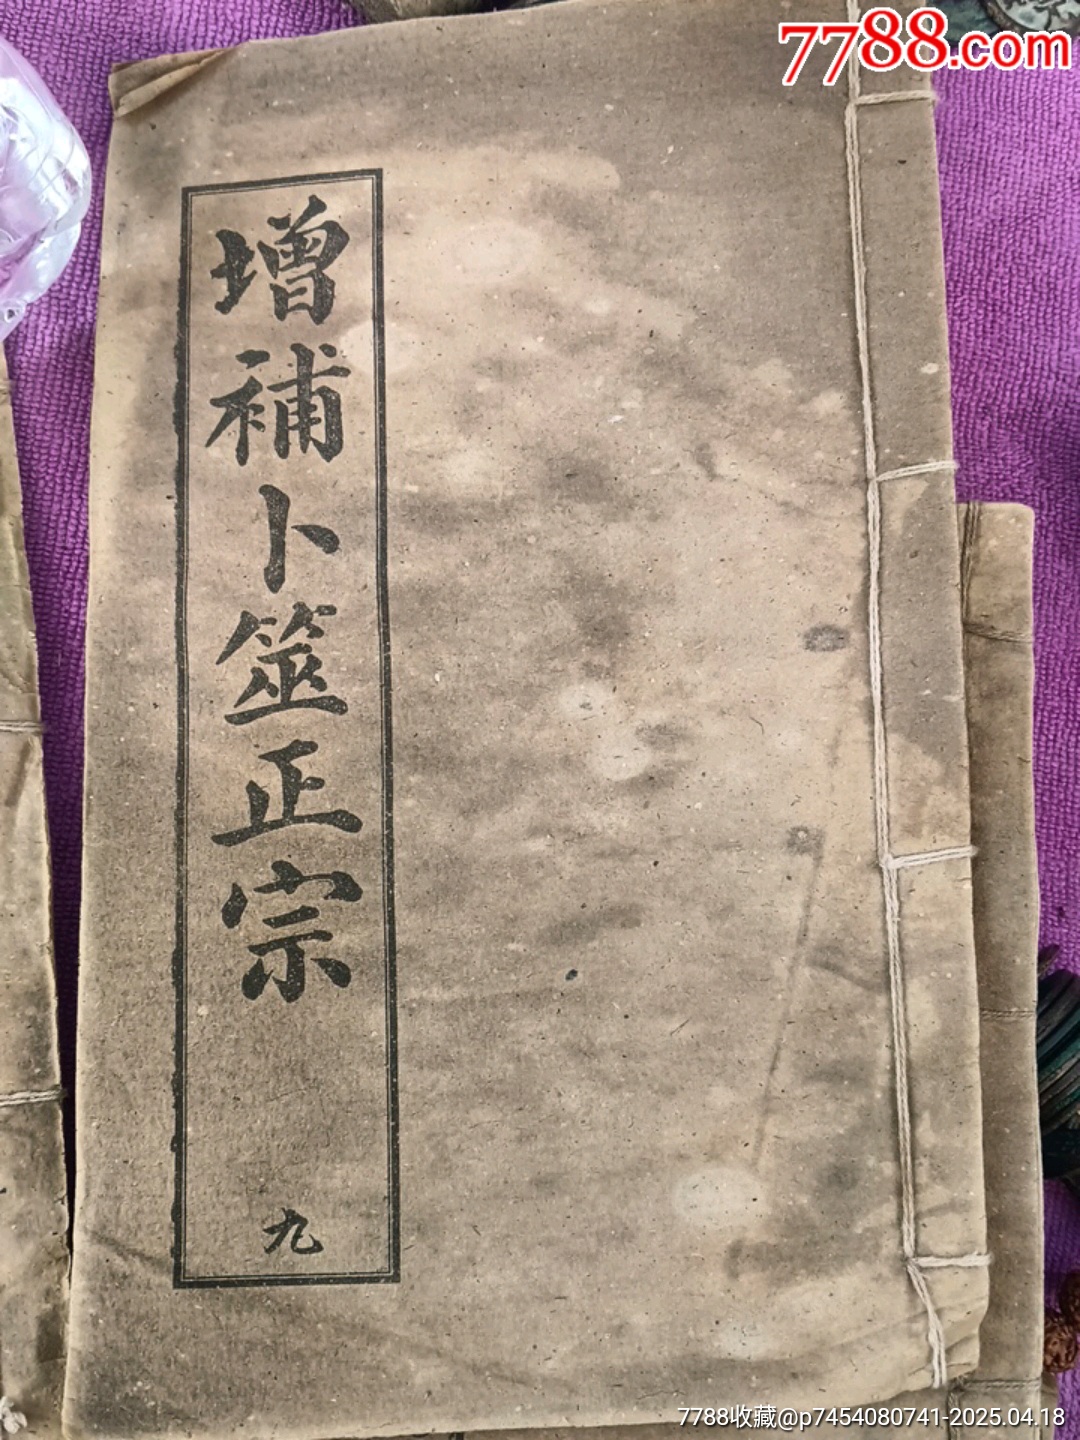 7788.com
增補卜筮正宗
九
7788收藏@p7454080741-2025.04.18